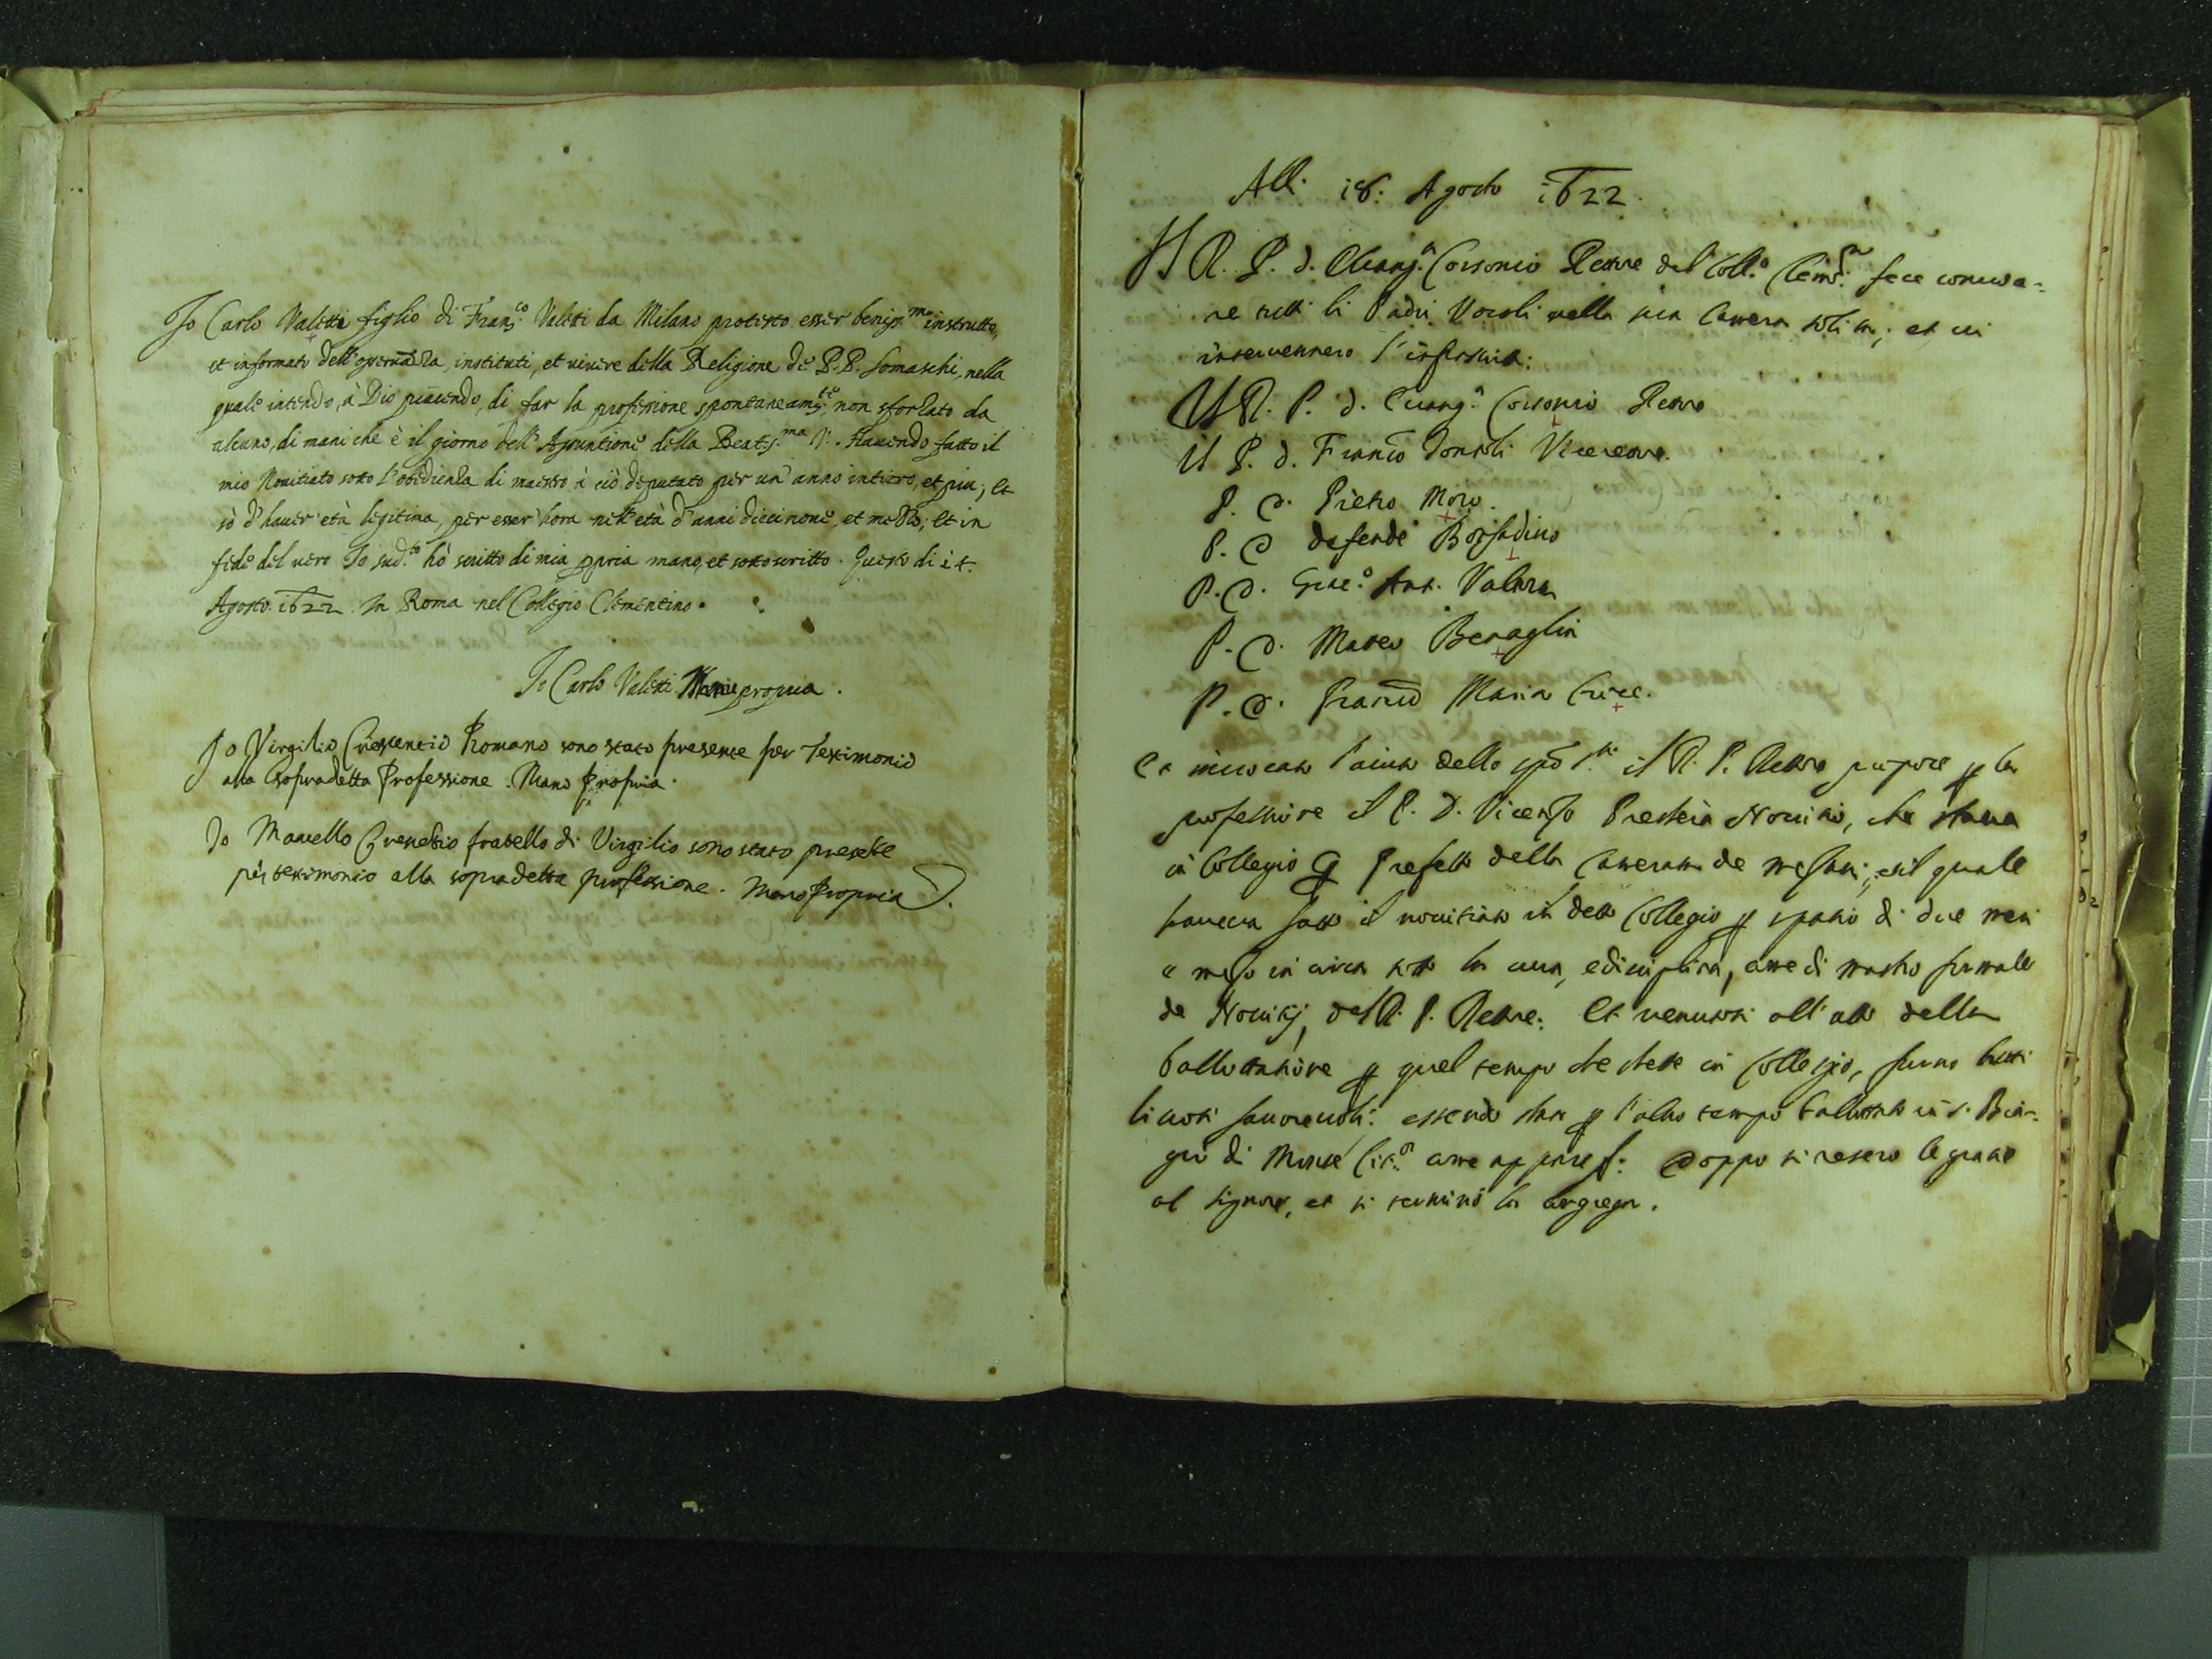 Io Carlo Valetti figlio di Franc.co Valetti da Milano protesto esser benigs.mo instrutto,
et informato dell'osservanza, instituti, et vivere della Religione de P.P. Somaschi, nella
quale intendo, à Dio piacendo, di far la professione spontaneam.te non sforzato da
alcuno, dimani che è il giorno dell'Assuntione della Beatis.ma V. Havendo fatto il
mio Novitiato sotto l'obedienza di maestro à ciò deputato per un'anno intiero, et piu; Et
sò d'haver età legitima, per esser hora nell'età d'anni diecinove, et mezzo; Et in
fede del vero Io sud.to hò scritto di mia ppria mano, et sottoscritto. Questo di 14.
Agosto 1622. In Roma nel Collegio Clementino.
Io Carlo Valetti Manu propria.
Io Virgilio Crescentio Romano sono stato presente per Testimonio
alla sopradetta Professione. Mano Propria.
Io Marcello Crescetio fratello di Virgilio sono stato presete
per testimonio alla sopradetta professione. Mano Propria
Alli 18. Agosto 1622.
Il R. P. d. Evang.a Corsonio Rettore del Coll.o Clem.no fece convoca-
re tutti li Padri Vocali nella sua Camera solita; et vi
intervennero l'infrascritti:
Il R. P. d. Evang.a Corsonio Rettore
Il P. d. Franco Tontoli Vicerettore.
P. D. Pietro Moro.
P. D. Defende Borsadino
P. D. Ant. Valtora
P. D. Matteo Benaglia
P. D. Franco Maria Croce.
Et invocato l'aiuto dello spo S.to il R. P. Rettore propose p la
professione il P. D. Vicenzo Novitio, che stava
in Collegio p Prefetto della Camerata de mezani; il quale
haveva fatto il novitiato in detto Collegio p spatio di due mesi
e mezo in circa sotto la cura, e disciplina, come di mastro formale
de Novitij, del R. P. Rettore. Et venutosi all'atto della
ballottatione p quel tempo che stette in Collegio, furno tutti
li voti favorevoli: essendo stato p l'altro tempo ballottato in S. Bia-
gio di Monte Cit.o come appare f: Doppo si resero le gratie
al Signore, et si terminò la congreg.